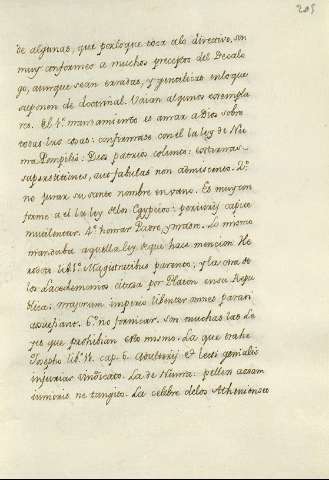 205
de algunas, que por lo que toca a lo directivo, son
muy conformes a muchos preceptos del Decalo
go, aunque sean erradas, y gentilicas en lo que
suponen de doctrinal. Vaian algunos exempla
res. El 1º. mandamiento es amar a Dios sobre
todas las cosas: confirmase con el la ley de Nu
ma Pompilio: Deos patrios colunto: externas
superstitiones, aut fabulas non admiscento. 2º.
no jurar su santo nombre en vano. Es muy con
forme a el la ley de los Egypcios: periurij capite
mutilantur. 4º. honrar Padre, y madre. Lo mismo
mandaba aquella ley de que hace mencion He
rodoto lib. 1º. Magistratibus parento; y la otra de
los Lacedemonios citada por Platon en su Repu
blica: maiorum imperio libenter omnes parere
assuescant. 6º. no fornicar. Son muchas las Le
yes que prohiben esto mismo. La que trahe
Josepho lib. 4. cap. 6. Adulterij et lecti genialis
iniurias vindicato. La de Numa: pellex aram
Junonis ne tangito. La celebre de los Athenienses